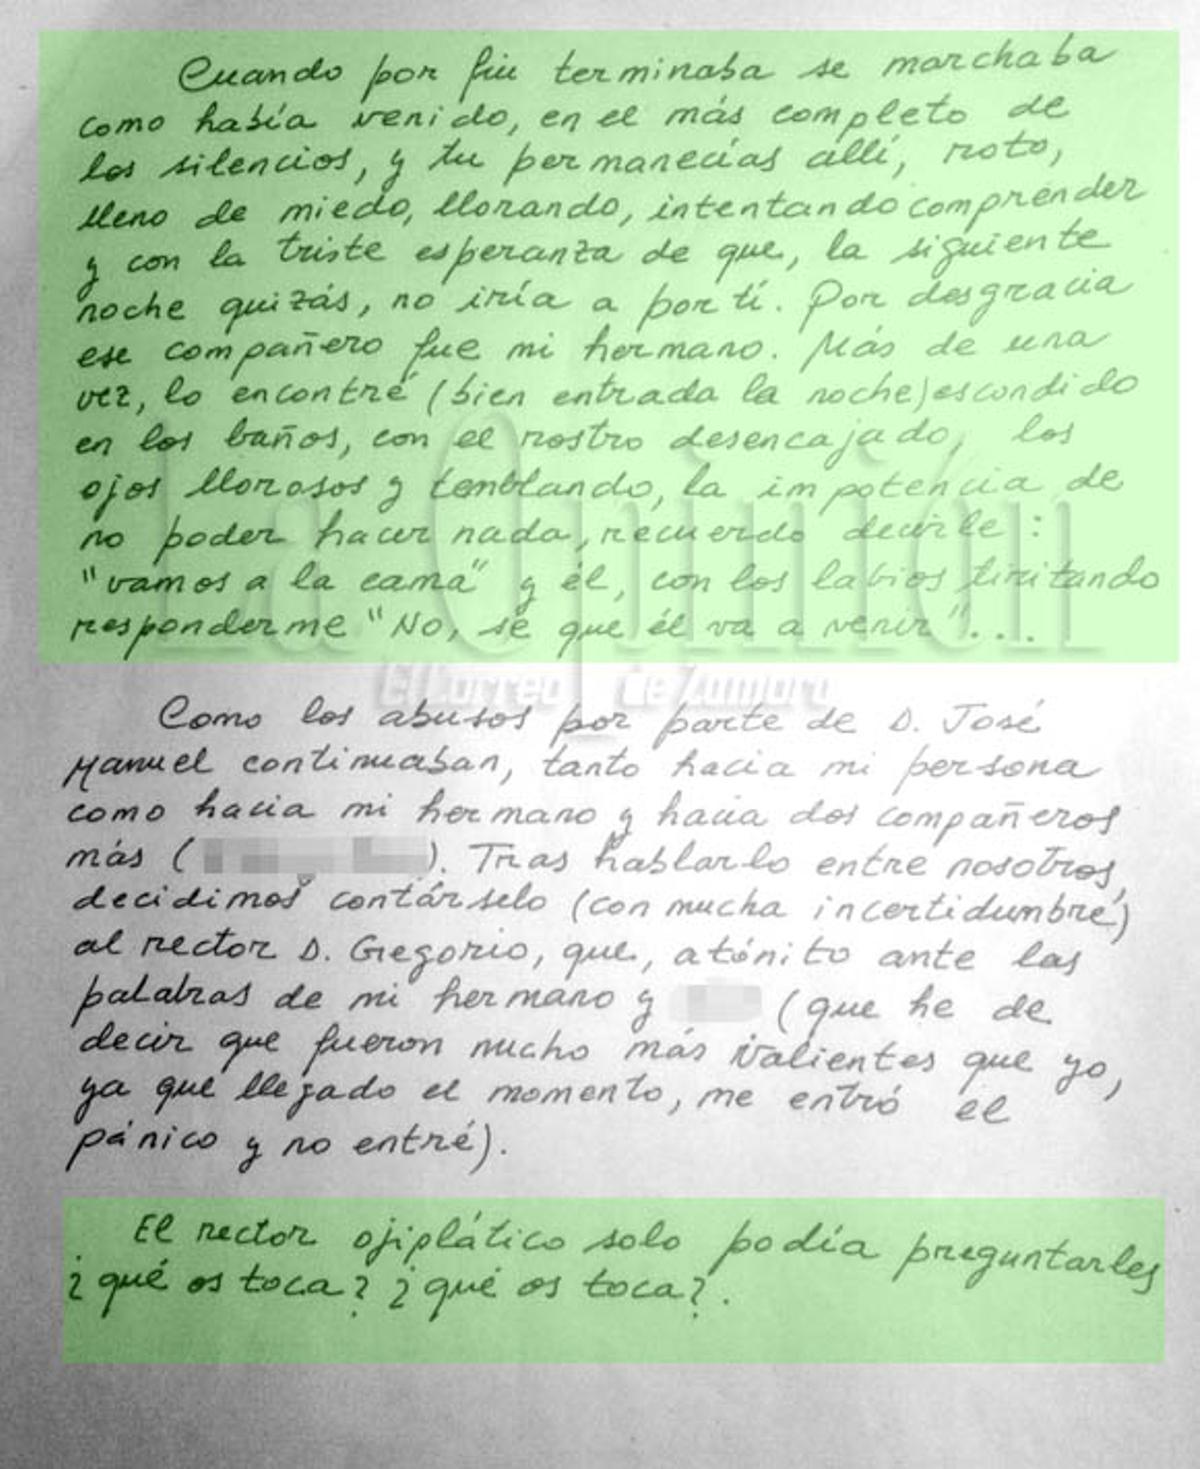 Cuando por fin terminaba se marchaba
como había venido, en el más completo de
los silencios, y tu permanecías allí, roto,
lleno de miedo, llorando, intentando comprender
y con la triste esperanza de que, la siguiente
noche quizás, no iría a por tí. Por desgracia
ese compañero fue mi hermano. Más de una
vez, lo encontré (bien entrada la noche) escondido
en los baños, con el rostro desencajado, los
ojos llorosos y temblando, la impotencia de
no poder hacer nada, recuerdo decirle:
"vamos a la cama" y él, con los labios tiritando
responderme "No, se que él va a venir"....
La Opinión
El Correo de Zamora
Como los abusos por parte de D. José
Manuel continuaban, tanto hacia mi persona
como hacia mi hermano y hacia dos compañeros
más (). Tras hablarlo entre nosotros,
decidimos contárselo (con mucha incertidumbre)
al rector D. Gregorio, que, atónito ante las
palabras de mi hermano y (que he de
decir que fueron mucho más valientes que yo,
ya que llegado el momento, me entró el
pánico y no entré).
El rector ojiplático solo podía preguntarles
¿qué os toca? ¿qué os toca?.